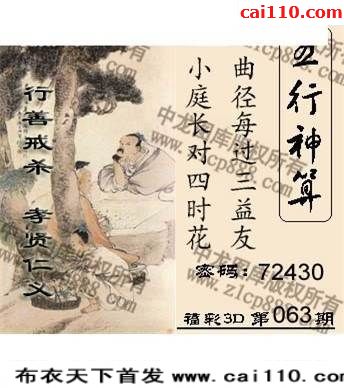 彩民之家
cai110.com
五行神算
曲径每过三益友
小庭长对四时花
行善戒杀 孝贤仁义
密码：72430
福彩3D 第063期
中龙图库版权所有
www.z1cp888.com
布衣天下首发 www.cai110.com